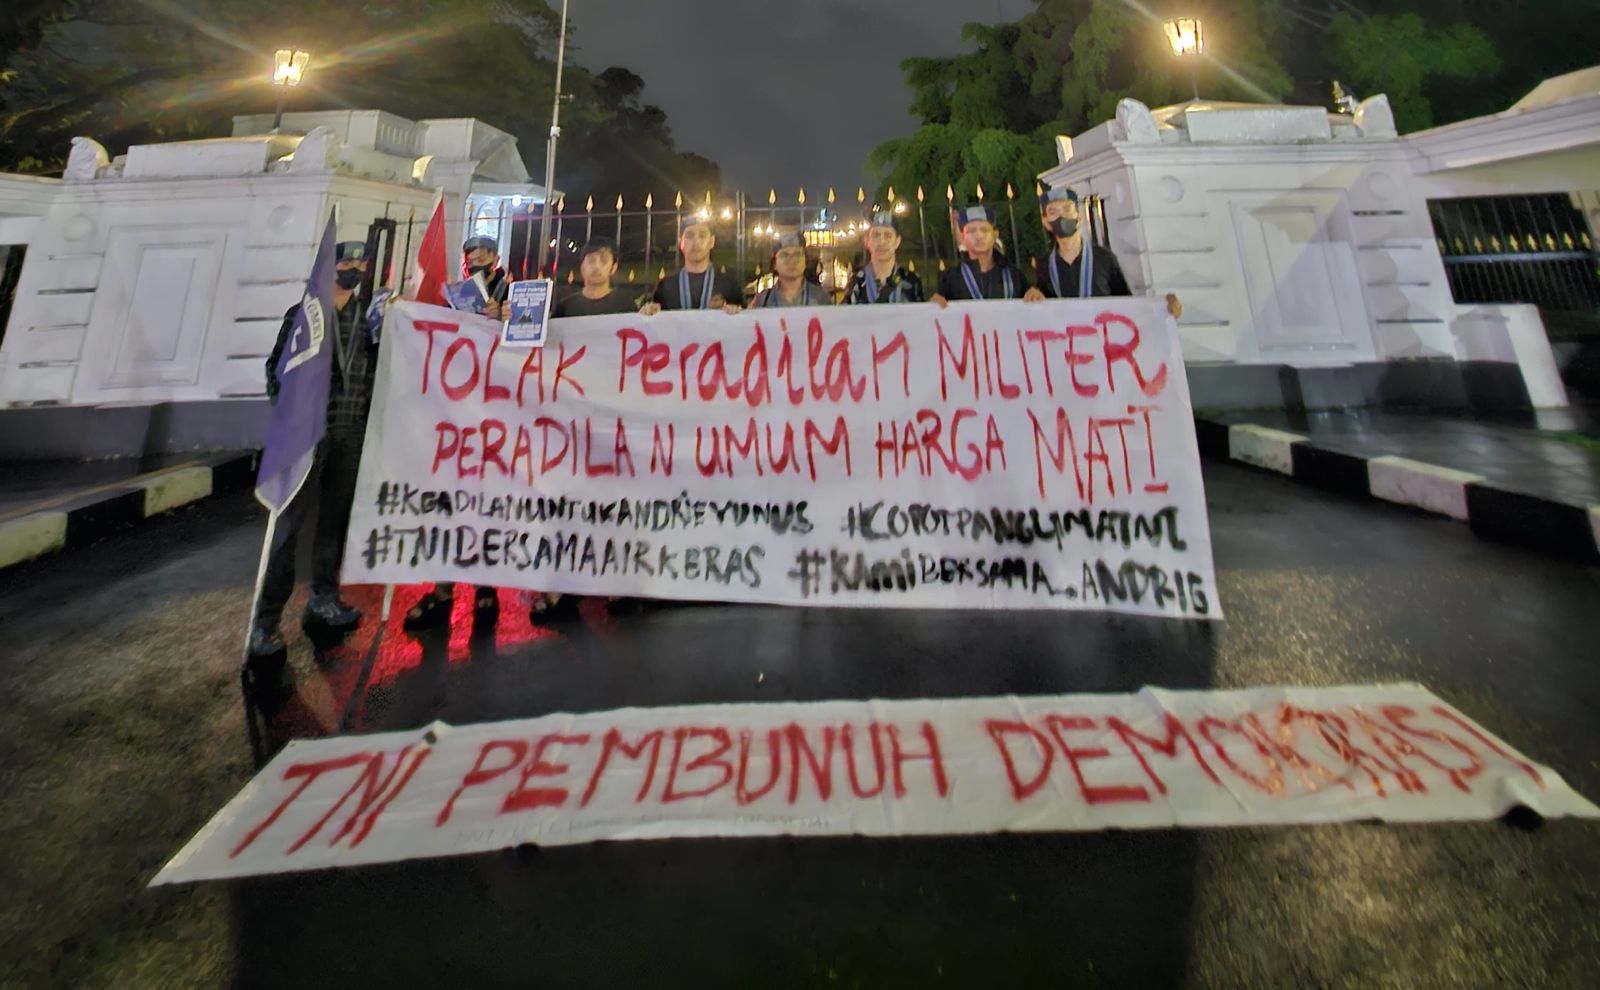 TOLAK Peradilan MILITER
PERADILAN UMUM HARGA MATI
#KEADILANUNTUKANDRIEYUNUS #COPOTPANGLIMATNI
#TNIBERSAMAAIRKERAS #KAMiBERSAMA.ANDRIE
TNI PEMBUNUH DEMOKRASI